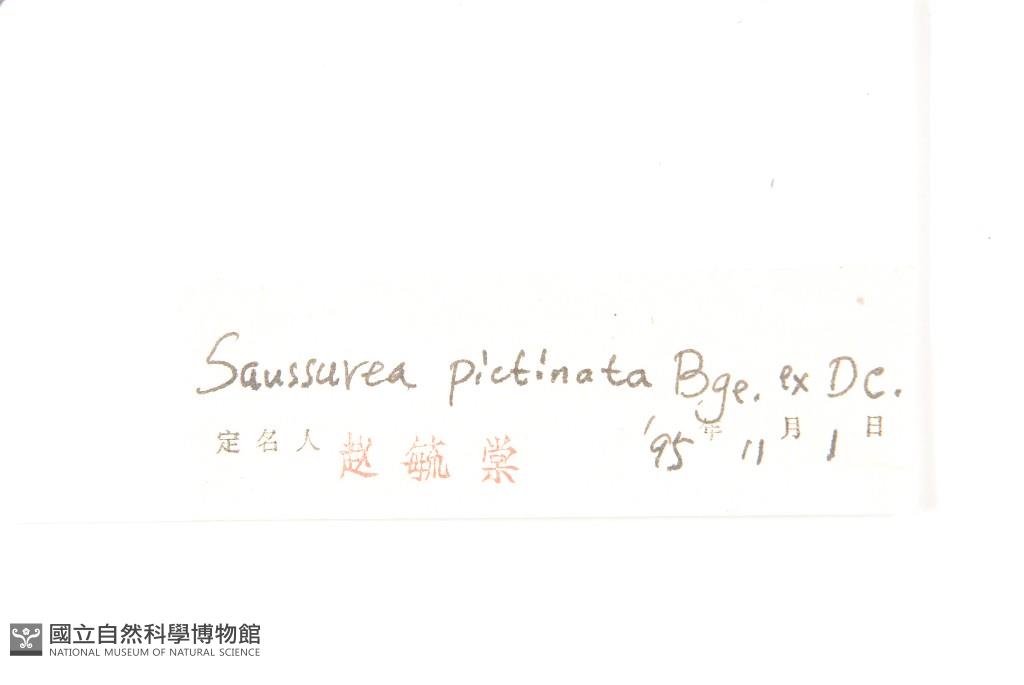 Saussurea pictinata Bge. ex DC.
定名人 赵毓棠 '95年 11月 1日
國立自然科學博物館
NATIONAL MUSEUM OF NATURAL SCIENCE